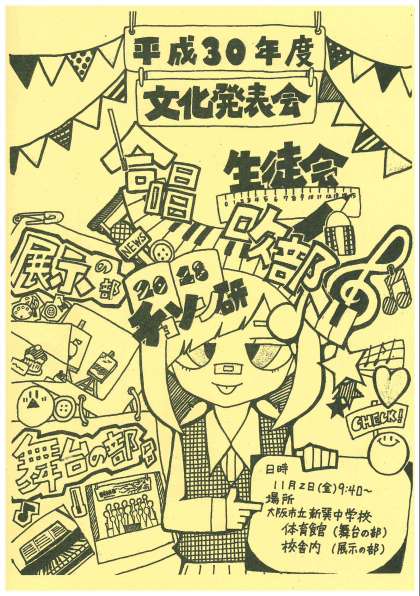 平成30年度
文化発表会
合唱
生徒会
吹部
NEWS
展示の部
CHECK!
舞台の部
日時
11月2日(金)9:40~
場所
大阪市立新巽中学校
体育館(舞台の部)
校舎内(展示の部)